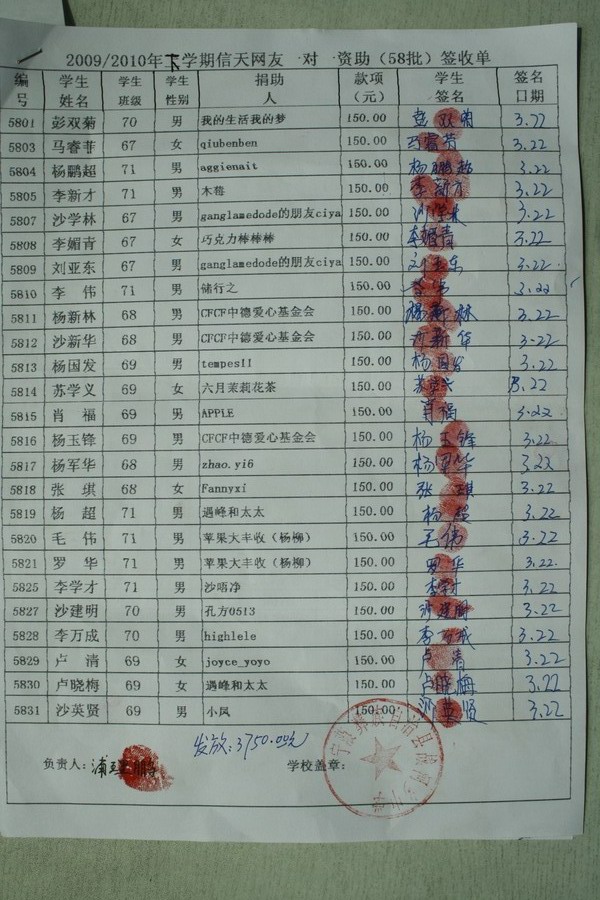 2009/2010年下学期信天网友一对一资助（58批）签收单
编号 学生姓名 学生班级 学生性别 捐助人 款项（元） 学生签名 签名日期
5801 彭双菊 70 男 我的生活我的梦 150.00 彭双菊 3.22
5803 马睿菲 67 女 qiubenben 150.00 马睿菲 3.22
5804 杨鹏超 71 男 aggienait 150.00 杨鹏超 3.22
5805 李新才 71 男 木莓 150.00 李新才 3.22
5807 沙学林 67 男 ganglamedode的朋友ciya 150.00 沙学林 3.22
5808 李媚青 67 女 巧克力棒棒棒 150.00 李媚青 3.22
5809 刘亚东 67 男 ganglamedode的朋友ciya 150.00 刘亚东 3.22
5810 李伟 71 男 储行之 150.00 李伟 3.22
5811 杨新林 68 男 CFCF中德爱心基金会 150.00 杨新林 3.22
5812 沙新华 68 男 CFCF中德爱心基金会 150.00 沙新华 3.22
5813 杨国发 69 男 tempes11 150.00 杨国发 3.22
5814 苏学义 69 女 六月茉莉花茶 150.00 苏学义 3.22
5815 肖福 69 男 APPLE 150.00 肖福 3.22
5816 杨玉锋 69 男 CFCF中德爱心基金会 150.00 杨玉锋 3.22
5817 杨军华 68 男 zhao.yi6 150.00 杨军华 3.22
5818 张琪 68 女 Fannyxi 150.00 张琪 3.22
5819 杨超 71 男 遇峰和太太 150.00 杨超 3.22
5820 毛伟 71 男 苹果大丰收（杨柳） 150.00 毛伟 3.22
5821 罗华 71 男 苹果大丰收（杨柳） 150.00 罗华 3.22
5825 李学才 71 男 沙唔净 150.00 李学才 3.22
5827 沙建明 70 男 孔方0513 150.00 沙建明 3.22
5828 李万成 70 男 highlele 150.00 李万成 3.22
5829 卢清 69 女 joyce_yoyo 150.00 卢清 3.22
5830 卢晓梅 69 女 遇峰和太太 150.00 卢晓梅 3.22
5831 沙英贤 69 男 小凤 150.00 沙英贤 3.22
发放:3750.00元
负责人: 学校盖章: